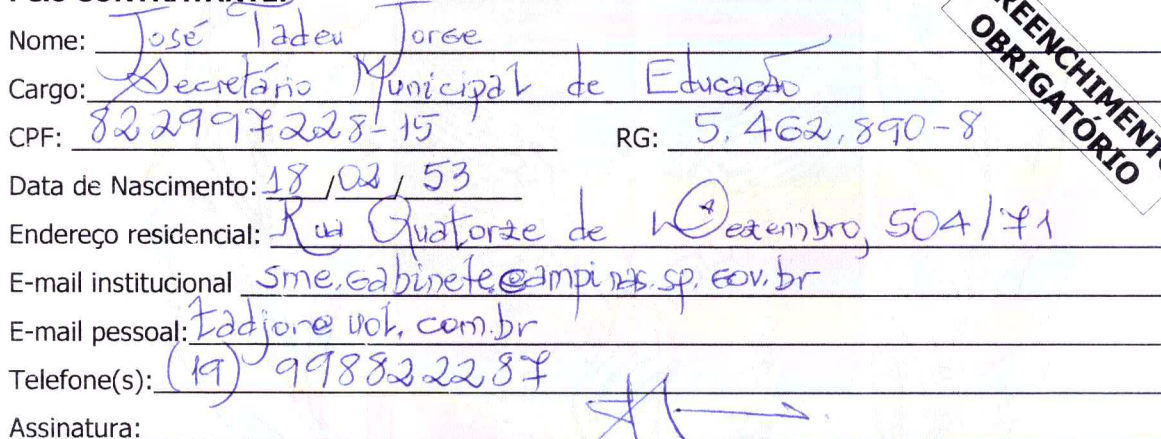 Pelo CONTRATANTE:
PREENCHIMENTO
OBRIGATÓRIO
Nome: José Tadeu Jorge
Cargo: Secretário Municipal de Educação
CPF: 822997228-15 RG: 5.462.890-8
Data de Nascimento: 18 / 02 / 53
Endereço residencial: Rua Quatorze de Dezembro, 504/71
E-mail institucional sme.gabinete@campinas.sp.gov.br
E-mail pessoal: tadjor@uol.com.br
Telefone(s): (19) 998822287
Assinatura: